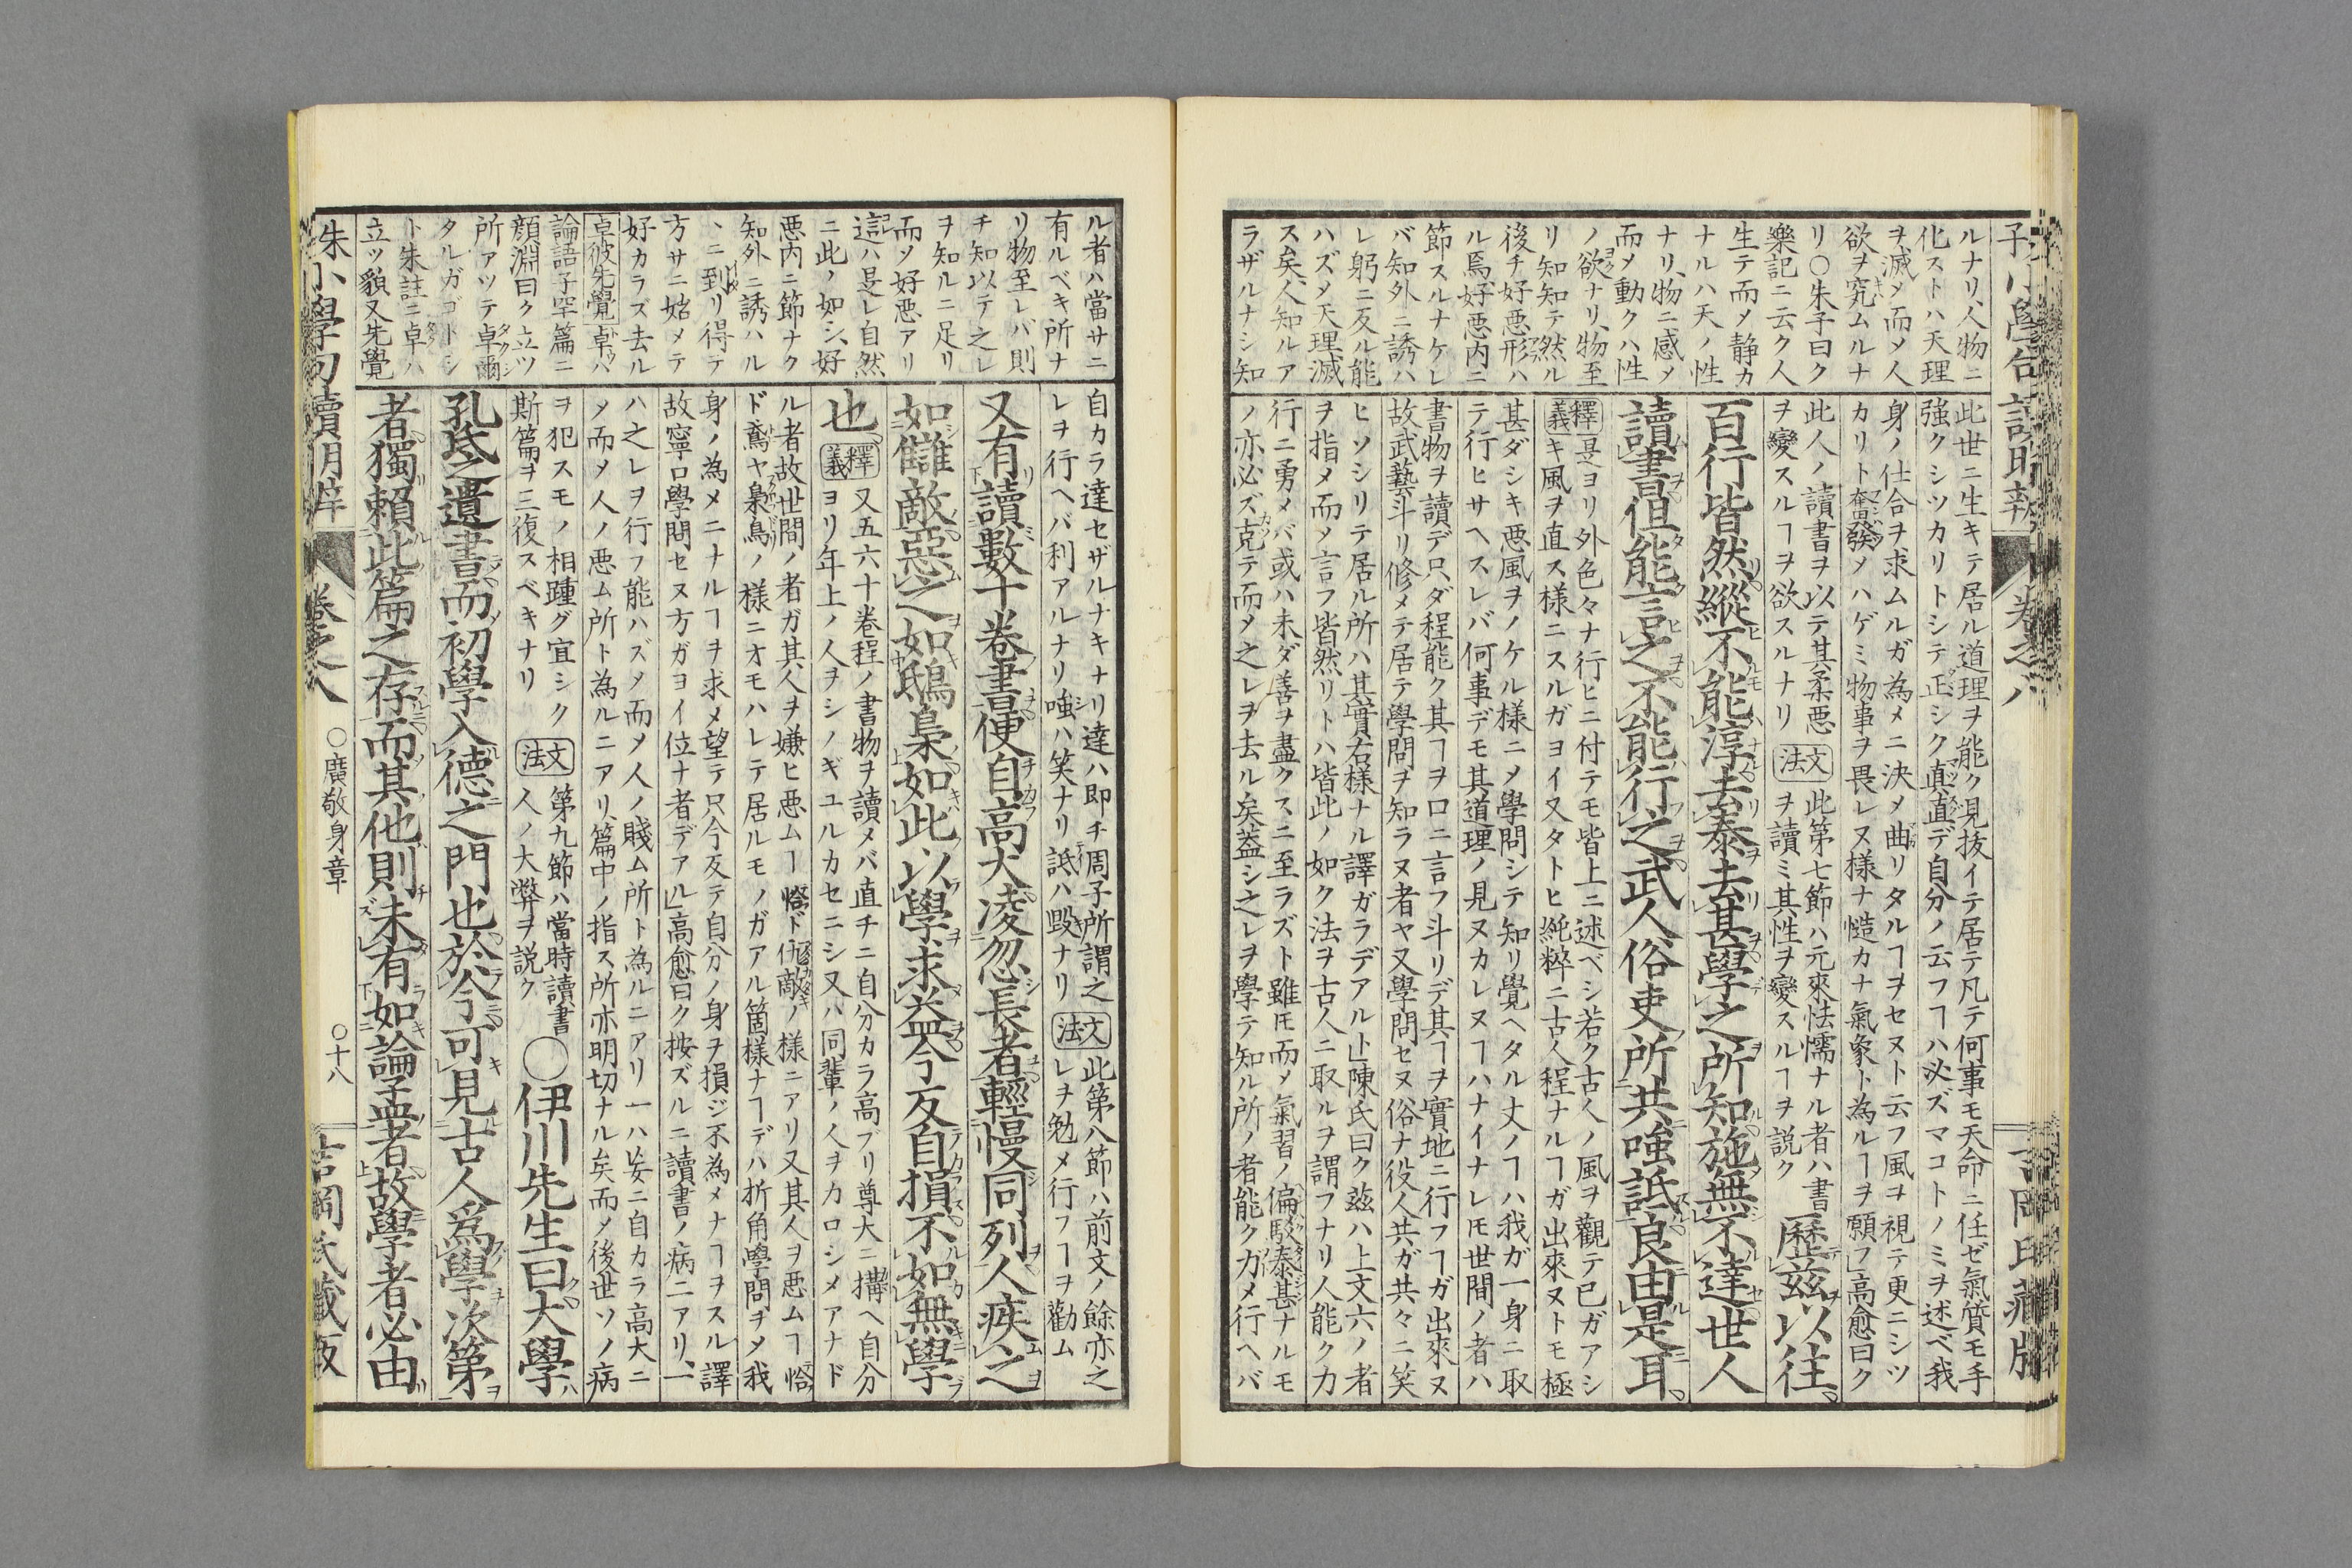 ルナリ、人物ニ
化ストハ天理
ヲ滅メ而ソ人
欲ヲ究ムルナ
リ○朱子曰ク
樂記ニ云ク人
生テ而メ静カ
ナルハ天ノ性
ナリ、物ニ感メ
而メ動クハ性
ノ欲ナリ、物至
リ知知テ然ル
後チ好悪形ハ
ル焉、好悪内ニ
節スルナケレ
バ知外ニ誘ハ
レ躬ニ反ル能
ハズメ天理滅
ス矣、人知ルア
ラザルナシ知
此世ニ生キテ居ル道理ヲ能ク見抜イテ居テ凡テ何事モ天命ニ任ゼ氣質モ手
強クシツカリトシテ正シク真直デ自分ノ云フヿハ必ズマコトノミヲ述ベ我
身ノ仕合ヲ求ムルガ為メニ決メ曲リタルヿヲセヌト云フ風ヲ視テ更ニシツ
カリト奮發メハゲミ物事ヲ畏レヌ様ナ慥カナ氣象ト為ルヿヲ願フ」高愈曰ク
此人ノ讀書ヲ以テ其柔悪
ヲ變スルヿヲ欲スルナリ
文法
此第七節ハ元來怯懦ナル者ハ書
ヲ讀ミ其性ヲ變スルヿヲ説ク
歴茲以往
百行皆然縱不能淳去泰去甚學之所知施無不達世人
讀書但能言之不能行之武人俗吏所共嗤詆良由是耳
釋義
是ヨリ外色々ナ行ヒニ付テモ皆上ニ述ベシ若ク古人ノ風ヲ觀テ已ガアシ
キ風ヲ直ス様ニスルガヨイ又タトヒ純粹ニ古人程ナルヿガ出來ヌトモ極
甚ダシキ悪風ヲノケル様ニメ學問シテ知リ覺ヘタル丈ノヿハ我ガ一身ニ取
テ行ヒサヘスレバ何事デモ其道理ノ見ヌカレヌヿハナイナレ𪜈世間ノ者ハ
書物ヲ讀デ只ダ程能ク其ヿヲ口ニ言フ斗リデ其ヿヲ實地ニ行フヿガ出來ヌ
故武藝斗リ修メテ居テ學問ヲ知ラヌ者ヤ又學問セヌ俗ナ役人共ガ共々ニ笑
ヒソシリテ居ル所ハ其實右様ナル譯ガラデアルト」陳氏曰ク茲ハ上文六ノ者
ヲ指メ而メ言フ皆然リトハ皆此ノ如ク法ヲ古人ニ取ルヲ謂フナリ人能ク力
行ニ勇メバ或ハ未ダ善ヲ盡クスニ至ラズト雖𪜈而メ氣習ノ偏駁泰甚ナルモ
ノ亦必ズ克テ而メ之レヲ去ル矣蓋シ之レヲ學テ知ル所ノ者能ク力メ行ヘバ
ル者ハ當サニ
有ルベキ所ナ
リ物至レバ則
チ知以テ之レ
ヲ知ルニ足リ
而ソ好悪アリ
這ハ是レ自然
ニ此ノ如シ、好
悪内ニ節ナク
知外ニ誘ハル
ヽニ到リ得テ
方サニ始メテ
好カラズ去ル
卓彼先覺 卓ハ
論語子罕篇ニ
顔淵曰ク立ツ
所アツテ卓爾
タルガゴトシ
ト朱註ニ卓ハ
立ツ貌又先覺
自カラ達セザルナキナリ達ハ即チ周子所謂之
レヲ行ヘバ利アルナリ嗤ハ笑ナリ詆ハ毀ナリ
文法
此第八節ハ前文ノ餘亦之
レヲ勉メ行フヿヲ勸ム
又有讀數十卷書便自高大凌忽長者輕慢同列人疾之
如讎敵惡之如鴟梟如此以學求益今反自損不如無學
也
釋義
又五六十巻程ノ書物ヲ讀メバ直チニ自分カラ高ブリ尊大ニ搆ヘ自分
ヨリ年上ノ人ヲシノギユルカセニシ又ハ同輩ノ人ヲカロシメアナド
ル者故世間ノ者ガ其人ヲ嫌ヒ悪ムヿ恰ド仇敵ノ様ニアリ又其人ヲ悪ムヿ恰
ド鳶ヤ梟鳥ノ様ニオモハレテ居ルモノガアル箇様ナヿデハ折角學問ヲメ我
身ノ為メニナルヿヲ求メ望テ只今反テ自分ノ身ヲ損ジ不為メナヿヲスル譯
故寧ロ學問セヌ方ガヨイ位ナ者デアル」高愈曰ク按ズルニ讀書ノ病二アリ、一
ハ之レヲ行フ能ハズメ而メ人ノ賤ム所ト為ルニアリ一ハ妄ニ自カラ高大ニ
メ而メ人ノ悪ム所ト為ルニアリ、篇中ノ指ス所亦明切ナル矣而メ後世ソノ病
ヲ犯スモノ相踵グ宜シク
斯篇ヲ三復スベキナリ
文法
第九節ハ當時讀書
人ノ大弊ヲ説ク
○伊川先生曰大學
孔氏之遺書而初學入德之門也於今可見古人爲學次第
者獨賴此篇之存而其他則未有如論孟者故學者必由
朱小學句讀明辨 巻之八 ○廣敬身章 ○十八 吉岡氏藏版